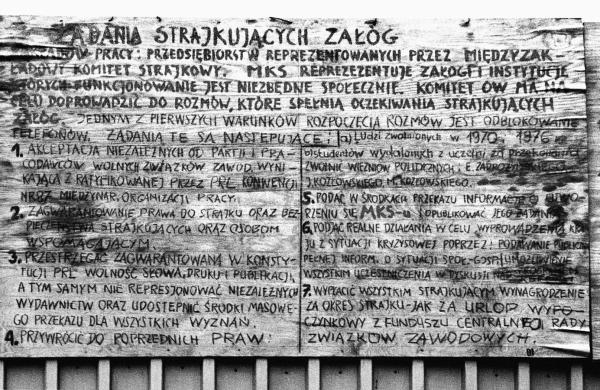 ZADANIA STRAJKUJĄCYCH ZAŁÓG
PRACY: PRZEDSIĘBIORSTW REPREZENTOWANYCH PRZEZ MIĘDZYZAK-
ŁADOWY KOMITET STRAJKOWY. MKS REPREZENTUJE ZAŁOGI I INSTYTUCJE
KTÓRYCH FUNKCJONOWANIE JEST NIEZBĘDNE SPOŁECZNIE. KOMITET ÓW MA NA
CELU DOPROWADZIĆ DO ROZMÓW, KTÓRE SPEŁNIĄ OCZEKIWANIA STRAJKUJĄCYCH
ZAŁÓG. JEDNYM Z PIERWSZYCH WARUNKÓW ROZPOCZĘCIA ROZMÓW JEST ODBLOKOWANIE
TELEFONÓW. ZADANIA TE SĄ NASTĘPUJĄCE:
1. AKCEPTACJA NIEZALEŻNYCH OD PARTJI I PRA-
CODAWCÓW WOLNYCH ZWIĄZKÓW ZAWOD. WYNI-
KAJĄCA Z RATYFIKOWANEJ PRZEZ PRL KONWENCJI
NR 87 MIĘDZYNAR. ORGANIZACJI PRACY.
2. ZAGWARANTOWANIE PRAWA DO STRAJKU ORAZ BEZ-
PIECZEŃSTWA STRAJKUJĄCYCH ORAZ OSOBOM
WSPOMAGAJĄCYM.
3. PRZESTRZEGAĆ ZAGWARANTOWANĄ W KONSTY-
TUCJI PRL WOLNOŚĆ SŁOWA, DRUKU I PUBLIKACJI,
A TYM SAMYM NIE REPRESJONOWAĆ NIEZALEŻNYCH
WYDAWNICTW ORAZ UDOSTĘPNIĆ ŚRODKI MASOWE-
GO PRZEKAZU DLA WSZYSTKICH WYZNAŃ.
4. PRZYWRÓCIĆ DO POPRZEDNICH PRAW:
a) Ludzi zwolnionych w 1970, 1976
b) studentów wydalonych z uczelni za przekonania
ZWOLNIĆ WIĘŹNIÓW POLITYCZNYCH: E. ZADROŻYŃSKIEGO
J. KOZŁOWSKIEGO M. KOZŁOWSKIEGO.
5. PODAĆ W ŚRODKACH PRZEKAZU INFORMACJĘ O UTWO-
RZENIU SIĘ MKS-u I OPUBLIKOWAĆ JEGO ŻĄDANIA
6. PODJĄĆ REALNE DZIAŁANIA W CELU WYPROWADZENIA KRA-
JU Z SYTUACJI KRYZYSOWEJ POPRZEZ: PODAWANIE PUBLICZNIE
PEŁNEJ INFORM. O SYTUACJI SPOŁ-GOSP. UMOŻLIWIENIE
WSZYSTKIM UCZESTNICZENIA W DYSKUSJI NAD
7. WYPŁACIĆ WSZYSTKIM STRAJKUJĄCYM WYNAGRODZENIE
ZA OKRES STRAJKU-JAK ZA URLOP WYPO-
CZYNKOWY Z FUNDUSZU CENTRALNEJ RADY
ZWIĄZKÓW ZAWODOWYCH.